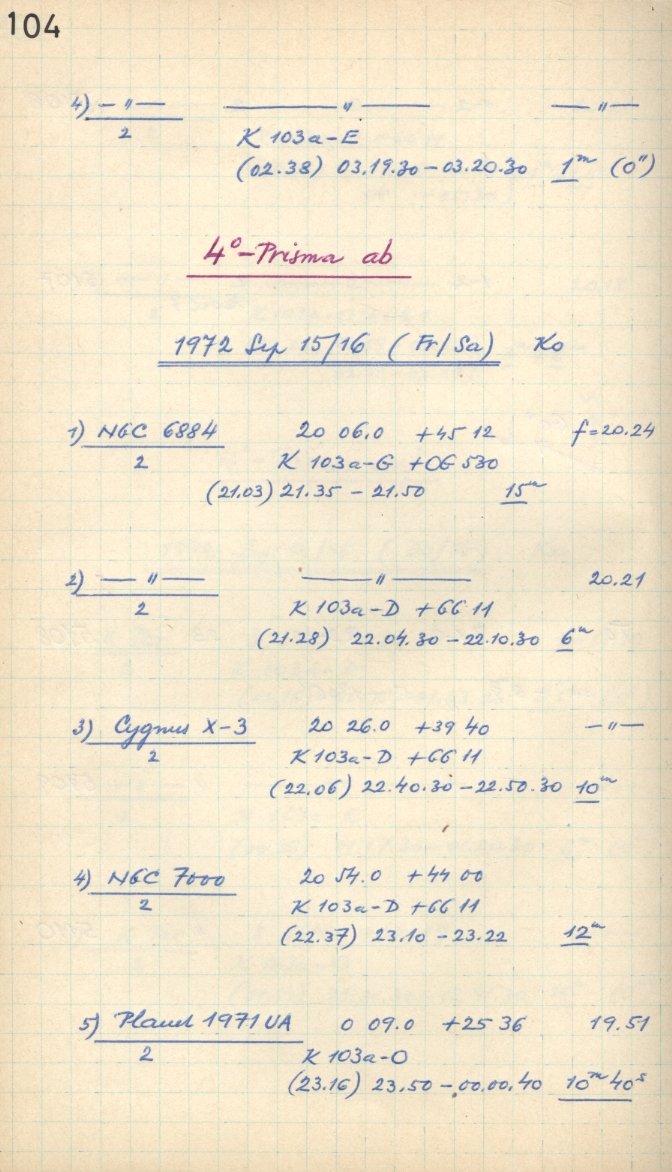 104
4) — " — ——— " ——— — " —
2 K 103a-E
(02.38) 03.19.30 – 03.20.30 1ᵐ (0")
4°-Prisma ab
1972 Sep 15/16 (Fr/Sa) Ko
1) NGC 6884 20 06.0 +45 12 f=20.24
2 K 103a-G +OG 530
(21.03) 21.35 – 21.50 15ᵐ
2) — " — ——— " ——— 20.21
2 K 103a-D +GG 11
(21.28) 22.04.30 – 22.10.30 6ᵐ
3) Cygnus X-3 20 26.0 +39 40 — " —
2 K 103a-D +GG 11
(22.06) 22.40.30 – 22.50.30 10ᵐ
4) NGC 7000 20 54.0 +44 00
2 K 103a-D +GG 11
(22.37) 23.10 – 23.22 12ᵐ
5) Planet 1971 UA 0 09.0 +25 36 19.51
2 K 103a-O
(23.16) 23.50 – 00.00.40 10ᵐ 40ˢ